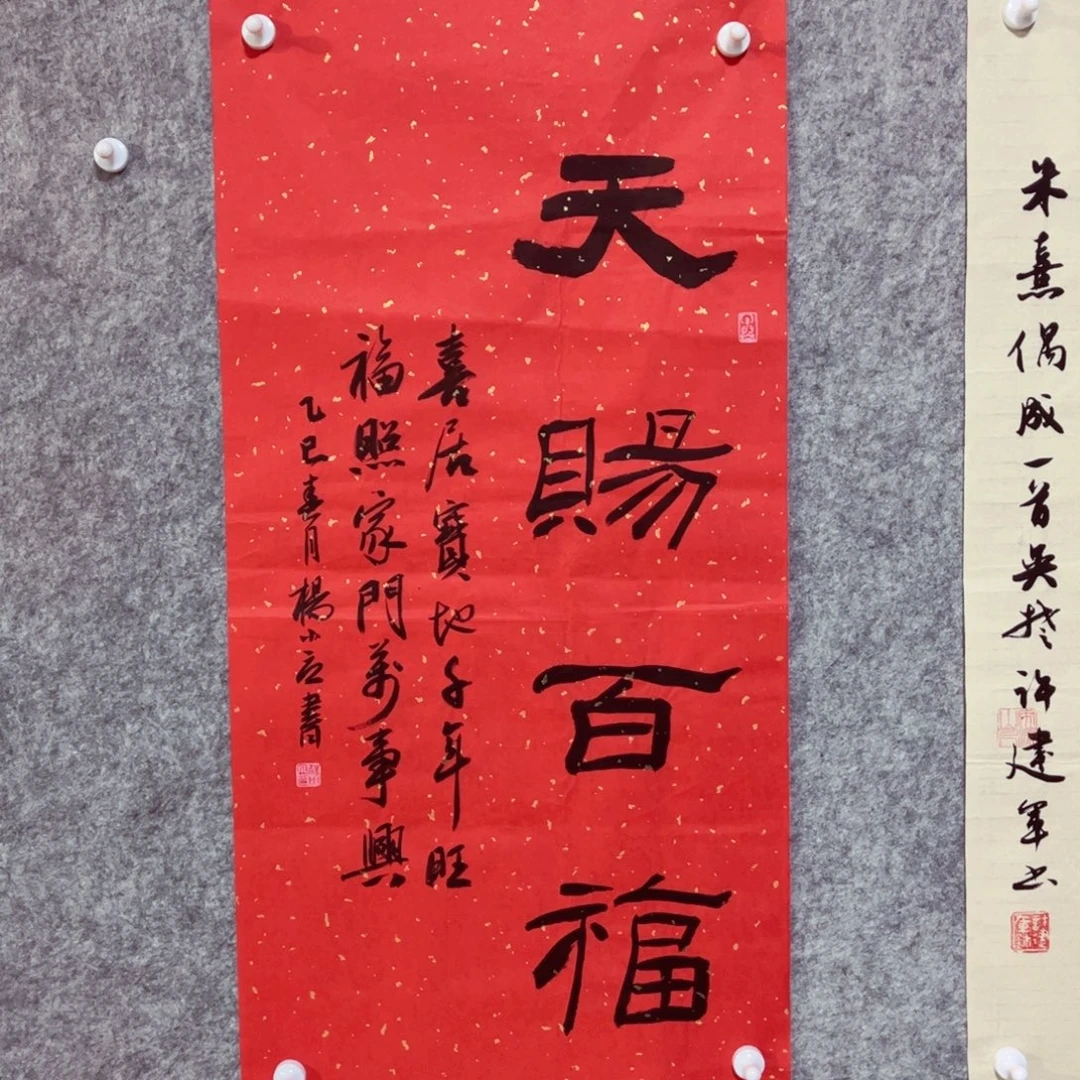 朱熹偶成一首吴楚许建军书
天賜百福
喜居寶地千年旺
福照家門萬事興
乙巳春月楊小立書